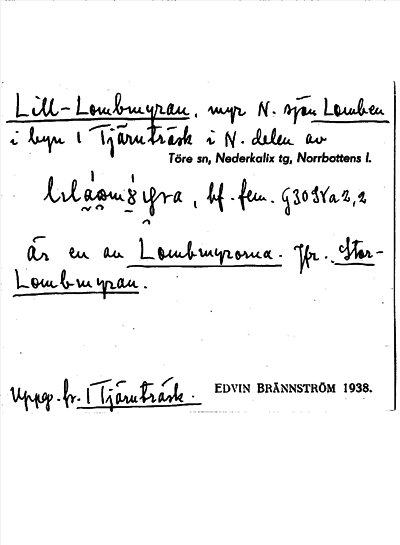 Lill-Lombmyran, myr N. sjön Lomben
i byn 1 Tjärnträsk i N. delen av
Töre sn, Nederkalix tg, Norrbottens l.
bf. fem.
är en av Lombmyrorna. Jfr. Stor-
Lombmyran.
Uppg. fr. 1 Tjärnträsk.
EDVIN BRÄNNSTRÖM 1938.